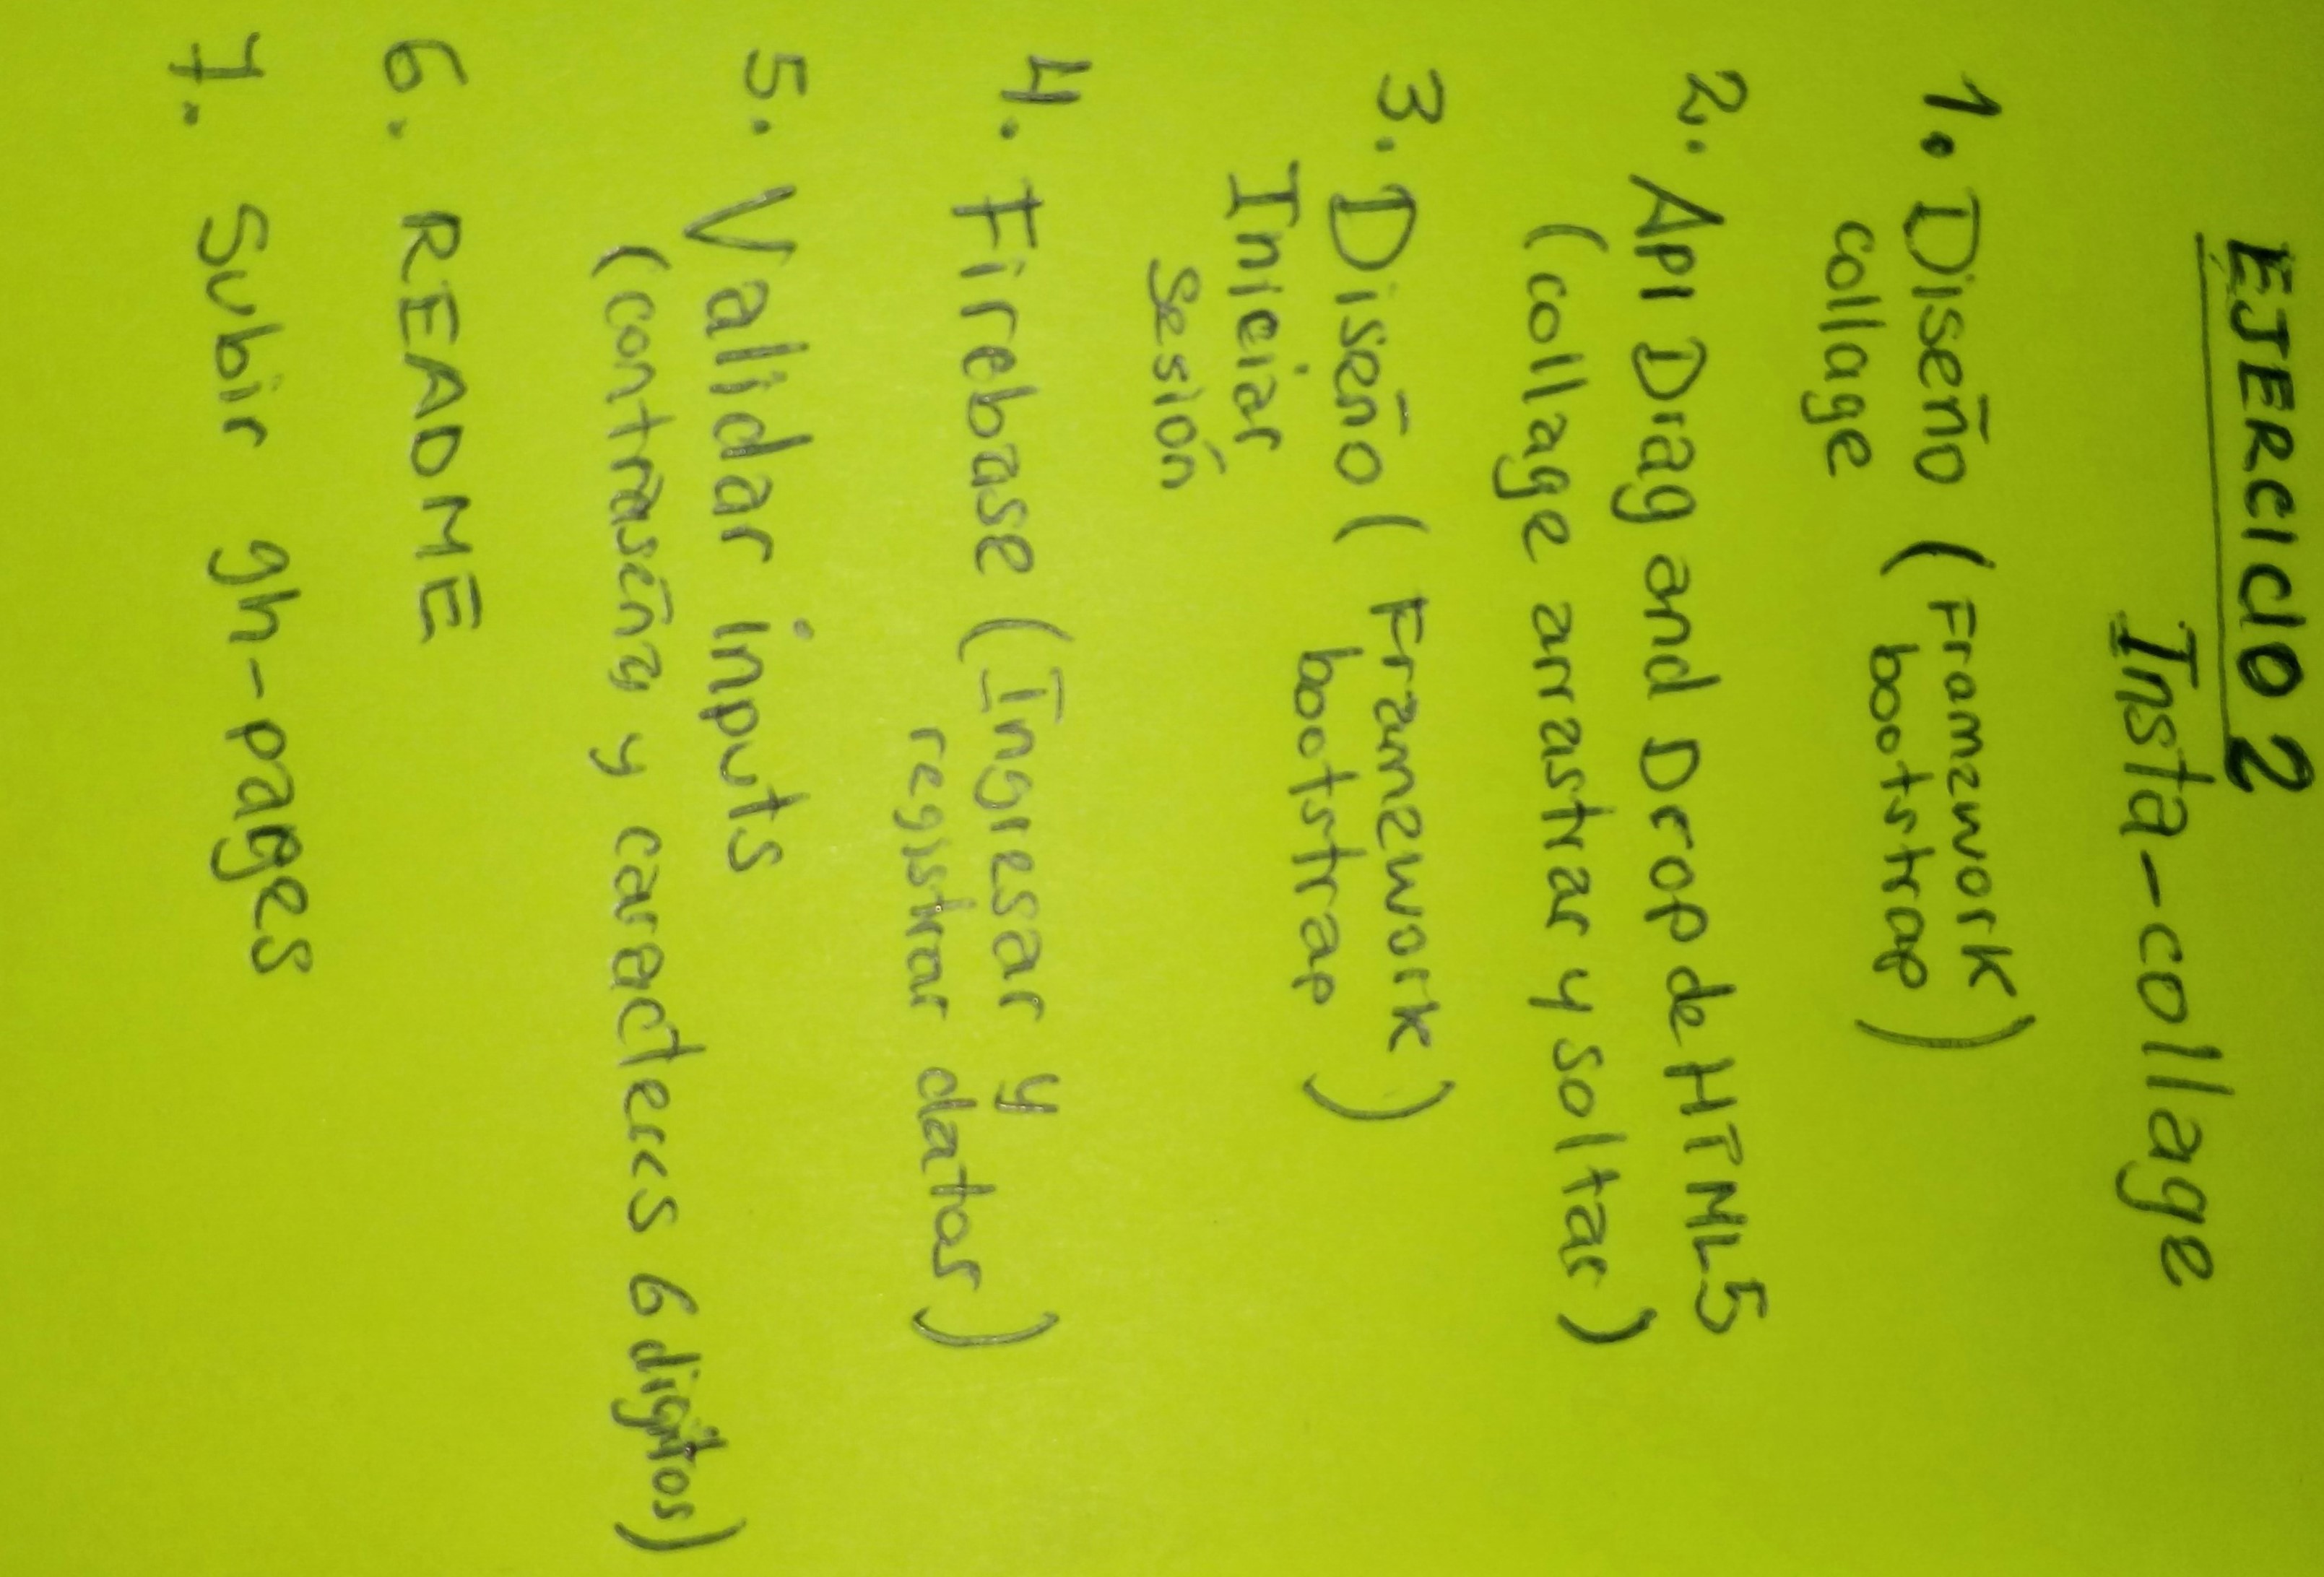 EJERCICIO 2
Insta-collage
1. Diseño (Framework
bootstrap)
collage
2. Api Drag and Drop de HTML5
(collage arrastrar y soltar)
3. Diseño (Framework
bootstrap)
Iniciar
Sesión
4. Firebase (Ingresar y
registrar datos)
5. Validar inputs
(contraseña y caracteres 6 digitos)
6. README
7. Subir gh-pages